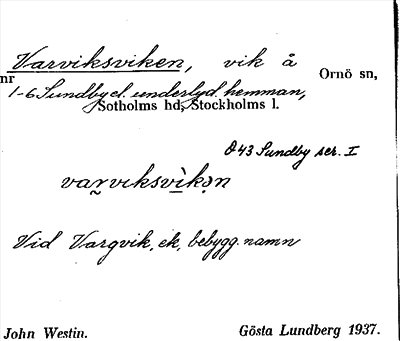 Varviksviken, vik å Ornö sn,
nr 1-6 Sundby el. underlyd. hemman,
Sotholms hd, Stockholms l.
D43 Sundby ser. I
var̰viksvìkən
Vid Vargvik, ek. bebygg. namn
John Westin. Gösta Lundberg 1937.